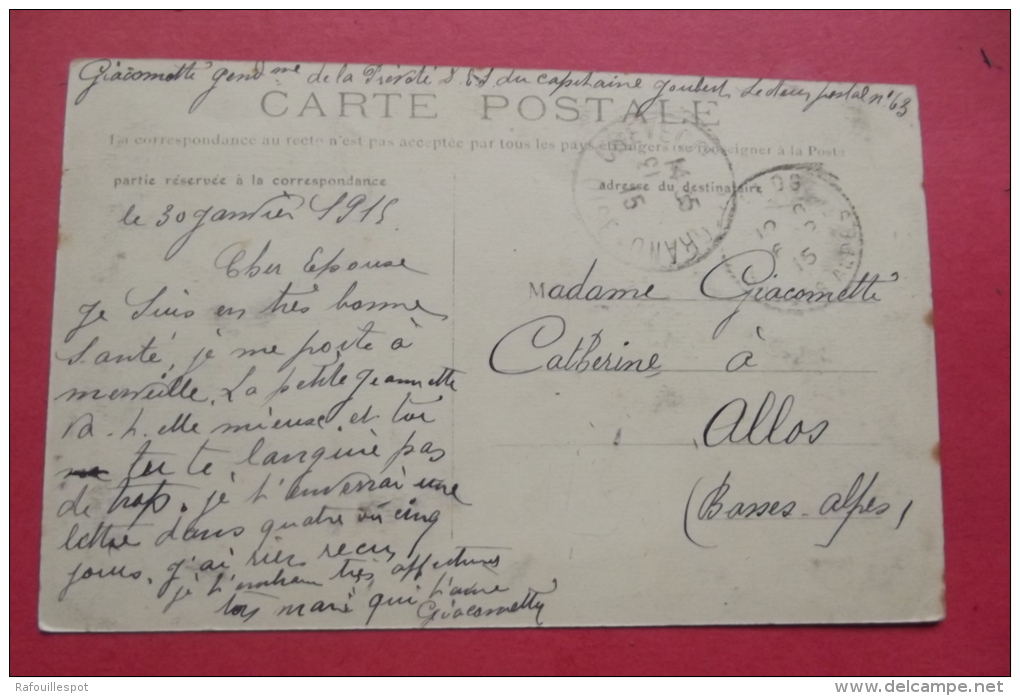 Giacometti gend me de la Prévôté D.E.S. du capitaine Joubert Secteur postal n° 63
CARTE POSTALE
La correspondance au recto n'est pas acceptée par tous les pays étrangers (se renseigner à la Poste
partie réservée à la correspondance
adresse du destinataire
le 30 janvièr 1915
Cher Epouse
Je Suis en très bonne
Santé, je me porte à
merveille. La petite Jeannette
va-t-elle mieuse, et toi
tu te languie pas
de trop. je t'enverrai une
lettre dans quatre ou cinq
jours. j'ai rien recu
je t'embrass très affectueus
ton marie qui t'aime
Giacometti
Madame Giacometti
Catherine à
Allos
(Basses-alpes)
Rafouillespot
www.delcampe.net